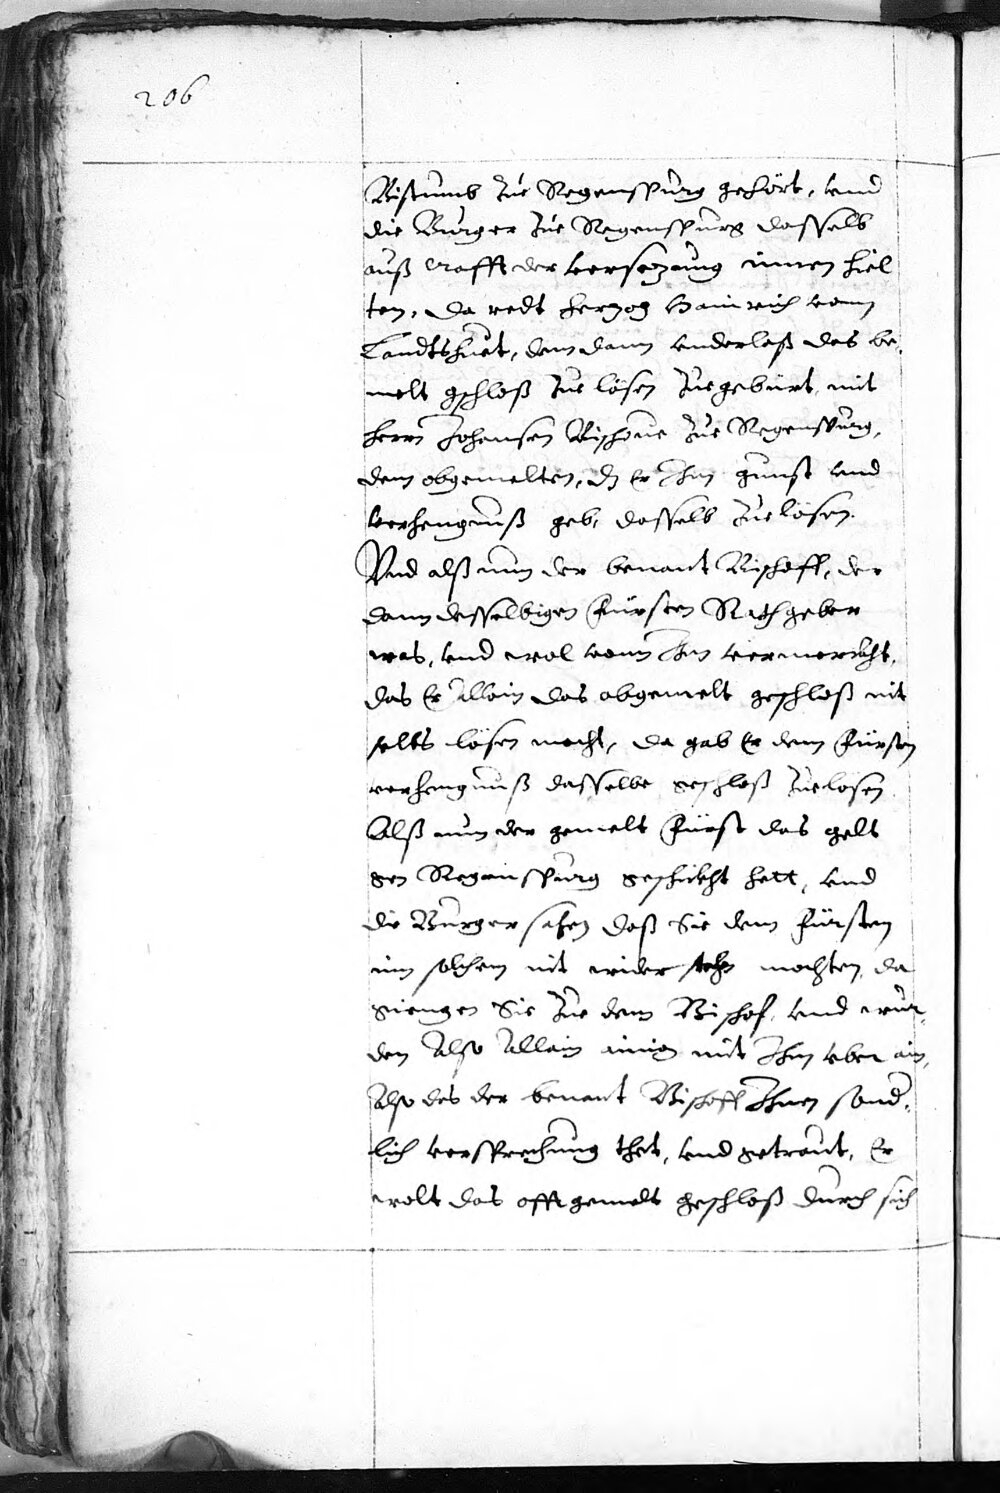 206
Bistumb zue Regenspurg gehört, vnd
die Burger zue Regenspurg dasselb
auß crafft der versezung innen hiel
ten, da redt herzog Hainrich vonn
Landtshuet, dem dann vnderlaß des be,
melt gschloß zue lösen zuegebürt, mit
herrn Johansen Bischoue zue Regenspurg,
dem obgemelten, dz Er Ihm gunst vnd
verhengnuß geb, dasselb zue lösen.
Vnd alß nun der benant Bischoff, der
dann desselbigen Fürsten Rathgeber
was, vnd wol vonn Ihm vermerckht,
das Er Allain das obgemelt geschloß nit
selbs lösen mocht, da gab Er dem Fürsten
verhengnuß dasselbe geschloß zuelosen
Alß nun der gemelt Fürst das gelt
gen Regenspurg geschickht hett, vnd
die Burger sahen daß Sie dem Fürsten
inn solchem nit wider stehn mochten, da
giengen Sie zue dem Bischof, vnd wur,
den Also Allain ainig mit Ihm vber ain,
Also das der benant Bischoff Ihnen sond,
lich versprechung thet, vnd getraut, Er
wolt das offtgemelt geschloß durch sich